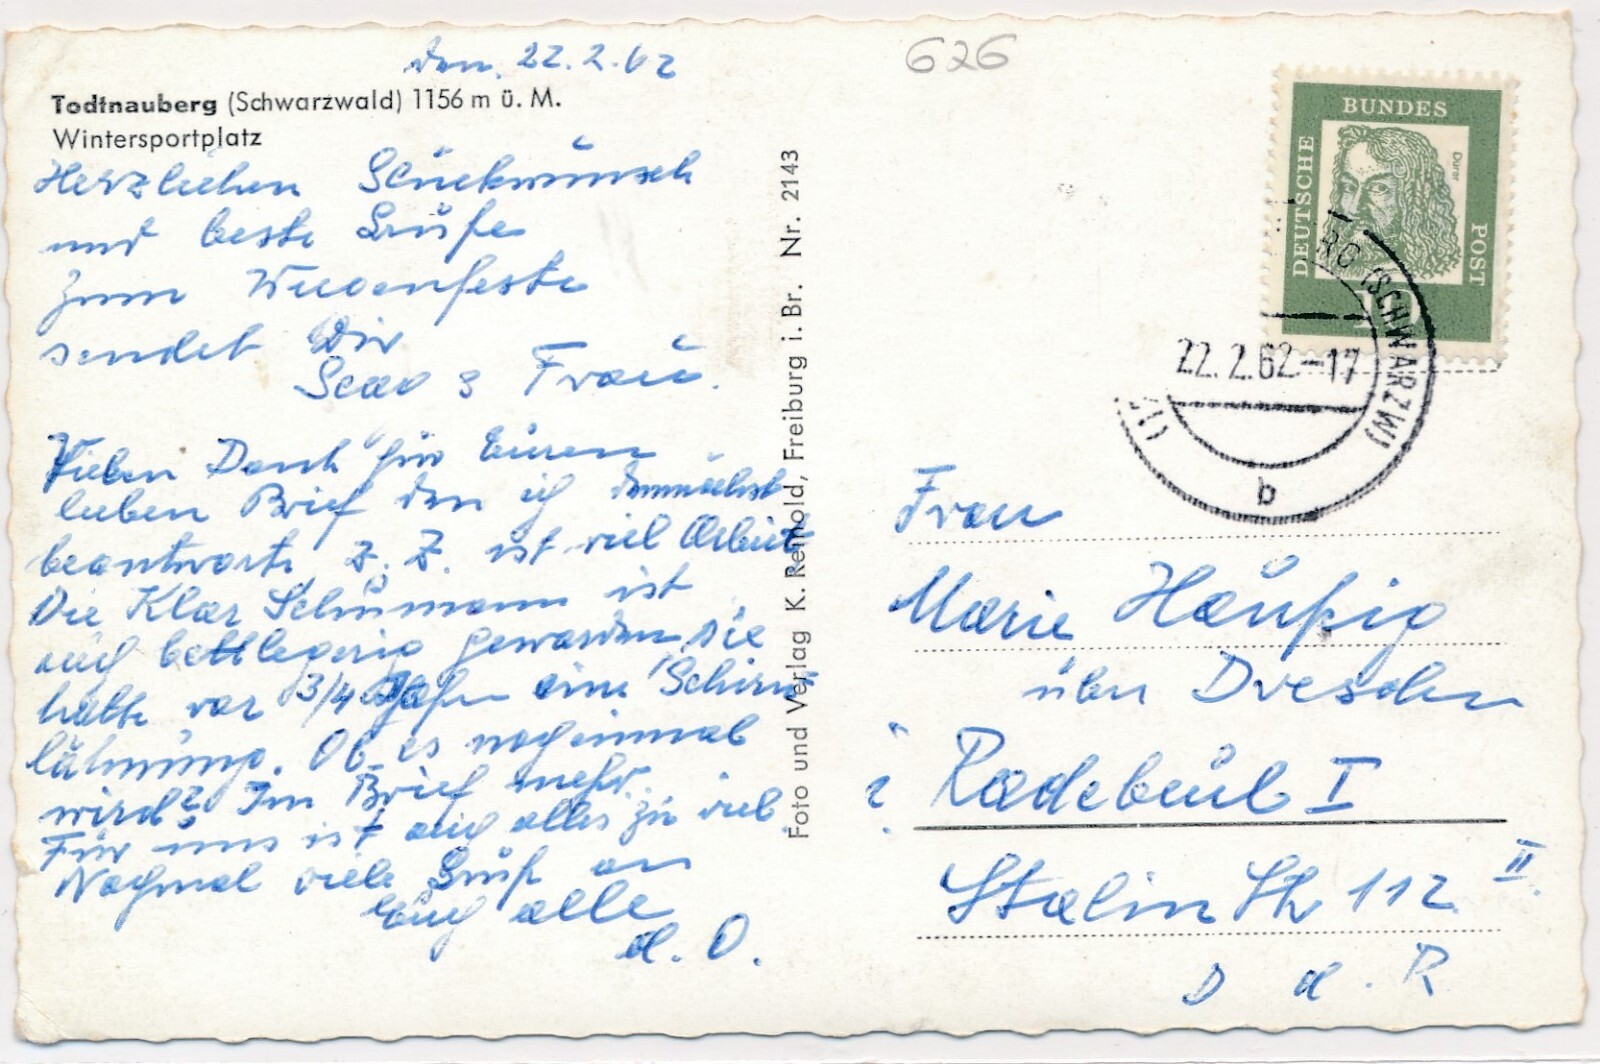 den. 22.2.62
626
Todtnauberg (Schwarzwald) 1156 m ü. M.
Wintersportplatz
Herzlichen Glückwunsch
und beste Grüße
zum Wiegenfeste
sendet Dir
& Frau.
Vielen Dank für Euren
lieben Brief den ich demnächst
beantworte z. Z. ist viel Arbeit
Die Klar Schumann ist
auch bettlegerig geworden, sie
hatte vor 3/4 Jahr eine
lähmung. Ob es nocheinmal
wird? Im Brief mehr.
Für uns ist auch alles zu viel
Nochmal viele Grüße an
Euch alle
d. O.
Foto und Verlag K. Reinold, Freiburg i. Br. Nr. 2143
DEUTSCHE BUNDES POST
Dürer
10
RG (SCHWARZW)
22.2.62-17
b
Frau
Marie Häußig
über Dresden
Radebeul I
Stalin Str 112 II.
D d. R